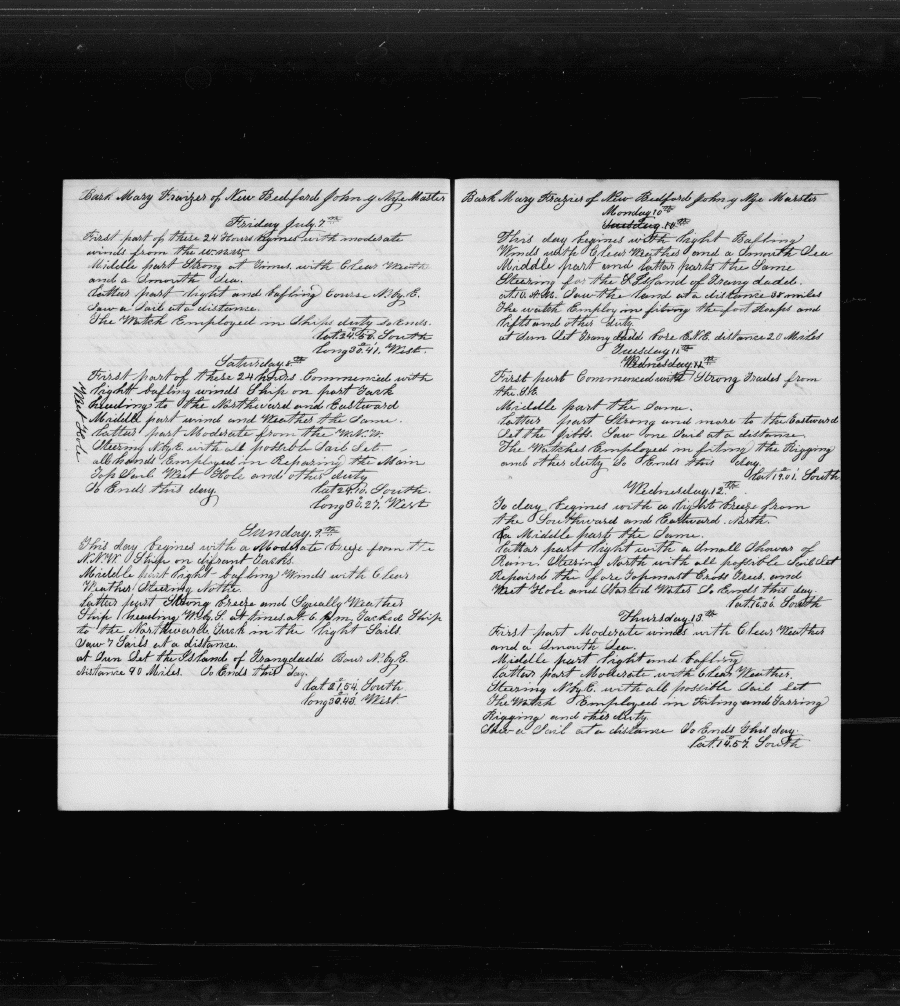 Bark Mary Fraizer of New Bedford John y Nye Master
Friday July 7th
First part of these 24 Hours begines with moderate
winds from the W.N.W.
Middle part Strong at times with Clear Weath
and a Smooth Sea.
Latter part light and bafling Course N. by E.
Saw a Sail at a distance.
The Watch Employed in Ships duty So Ends.
Lat. 24.50. South
Long 30.41. West.
Saturday 8th
First part of these 24 hours Commenced with
light bafling winds Ship on port Tack
heading to the Northward and Eastward
Middle part wind and Weather the Same.
Latter part Moderate from the W.N.W.
Steering N by E with all possible Sail Set
all hands Employed in Repairing the Main
Top Sail West Hole and other duty
So Ends this day.
Lat 24.10. South.
Long 30.27. West
West Hole
Sunday 9th
This day begines with a Moderate breeze from the
N.N.W. Ship on difrant Tacks.
Middle part light bafling Winds with Clear
Weather Steering Nothe.
Latter part Strong breeze and Squally Weather
Ship heading W. by S. at times at 6 P.m. Tacked Ship
to the Northward Tuck in the light Sails
Saw 7 Sails at a distance.
at Sun Set the Island of Trangdadd Bour N. by E.
distance 90 Miles. So Ends this day.
Lat 21.54. South
Long 30.43. West.
Bark Mary Frazier of New Bedford John y Nye Marster
Monday 10th
Tuesday 10th
This day begines with light Bafling
Winds with Clear Weather and a Smooth Sea
Middle part and latter parts the Same
Steering for the Island of Trangdaded.
at 10. A.M. Saw the land at a distance 38 miles
The watch Employ in fixing the foot Roaps and
lifts and other duty.
at Sun Set Trangdadd bore E.N.E. distance 20 Miles
Tuesday 11th
Wednesday 11th
First part Commenced with Strong Trades from
the S.E.
Middle part the Same.
Latter part Strong and more to the Eastward
Set the Saw one Sail at a distance.
The Watches Employed in fixing the Rigging
and other duty So Ends this day.
Lat 19.01. South
Wednesday 12th
To day begines with a light breeze from
the Southward and Eastward. North.
Middle part the Same.
Lattar part light with a Small Shower of
Rain. Steering North with all possible Sail Set
Repaired the fore Topmast Cross Trees. and
West Hole and Started Water So Ends this day
Lat. 16.36 South
Thursday 13th
First part Moderate winds with Clear Weather
and a Smooth Sea.
Middle part light and bafling
Latter part Moderate with Clear Weather.
Steering N by E. with all possible Sail Set
The Watch Employed in Fixing and Tarring
Rigging and other duty
Saw a Sail at a distance So Ends This day
Lat. 14.57. South